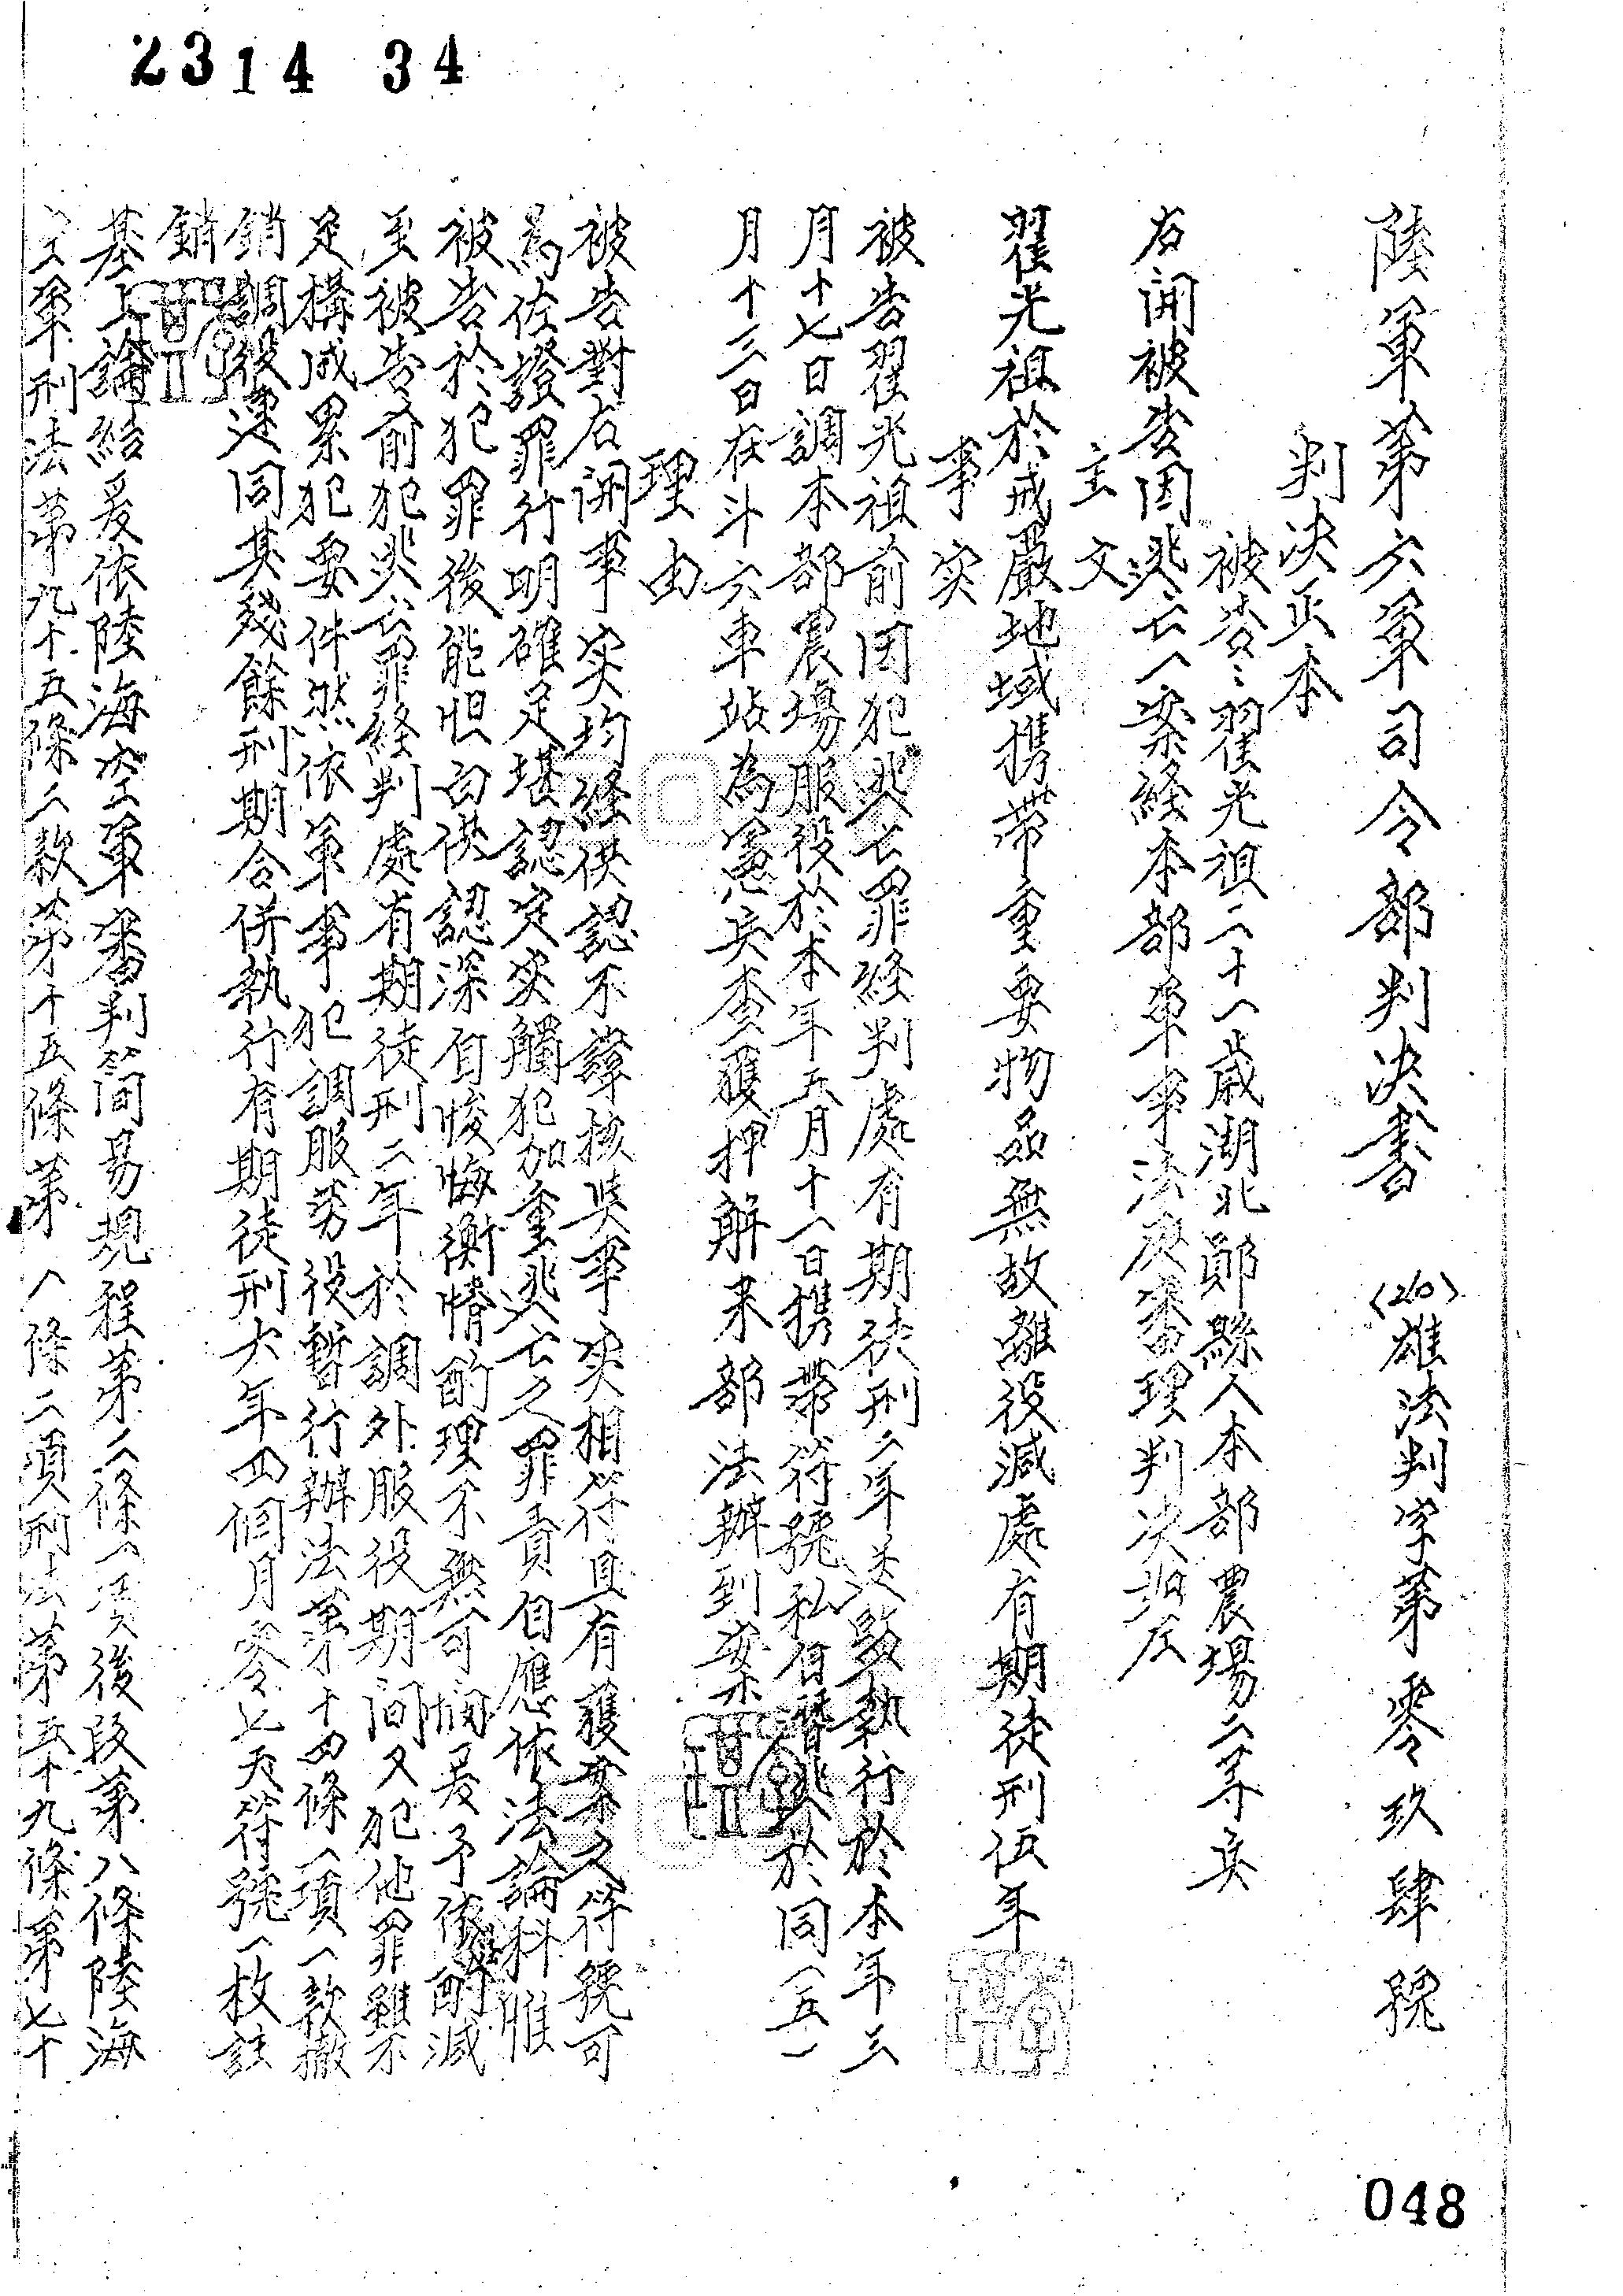 2314 34
陸軍第六軍司令部判決書 (40)雄法判字第零玖肆號
判決正本
被告：翟光祖二十一歲湖北鄖縣人本部農場二等兵
右開被告因逃亡一案經本部軍事法庭審理判決如左
主文
翟光祖於戒嚴地域携帶重要物品無故離役減處有期徒刑伍年
事实
被告翟光祖前因犯逃亡罪經判處有期徒刑二年送監執行於本年三
月十七日調本部農場服役於本年五月十一日携帶符號私自潛逃於同(五)
月十三日在斗六車站為憲兵查獲押解来部法辦到案
理由
被告對右開事实均經供認不諱核與事实相符且有獲案之符號可
為佐證罪行明確足堪認定实觸犯加重逃亡之罪責自應依法論科惟
被告於犯罪後能坦白供認深自悛悔衡情酌理不無可憫爰予依酌減
至被告前犯逃亡罪経判處有期徒刑二年於調外服役期间又犯他罪雖不
足構成累犯要件然依軍事犯調服勞役暫行辦法第十四條一項一款撤
銷調役連同其殘餘刑期合併執行有期徒刑六年四個月零七天符號一枚註
銷
基上論結爰依陸海空軍審判简易規程第二條一項後段第八條陸海
空軍刑法第九十五條二款第十五條第八條二項刑法第五十九條第七十
048